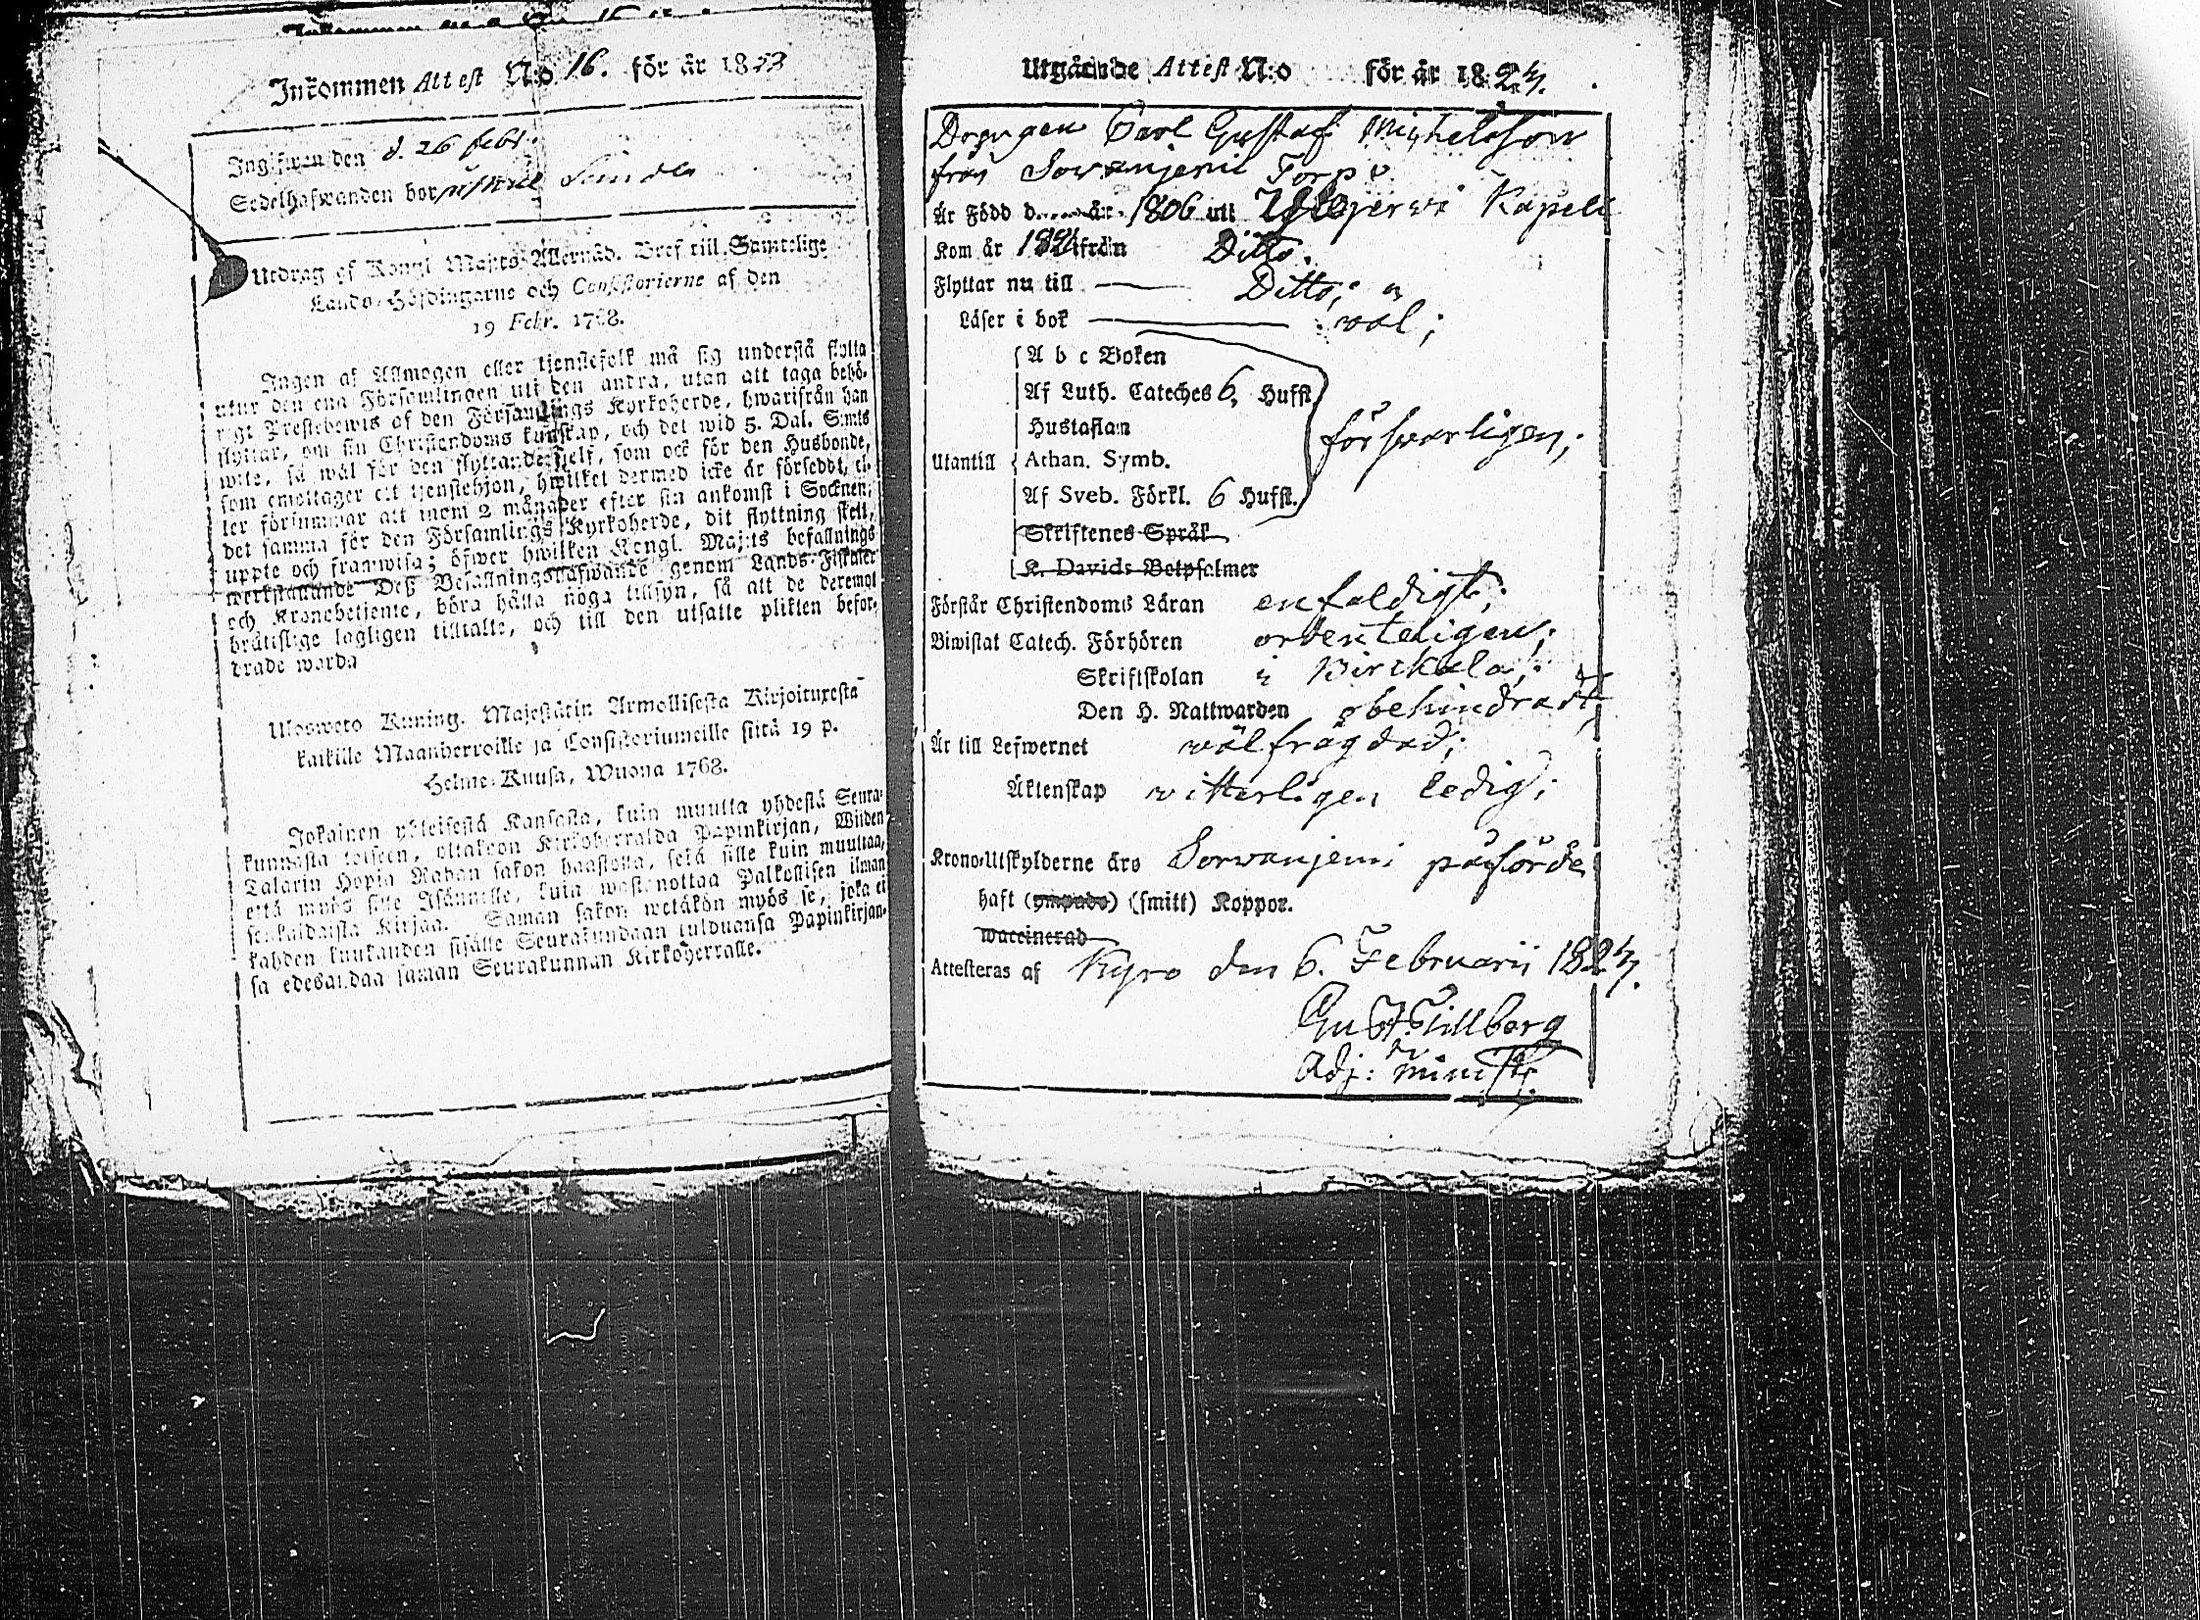 Inkommen Attest N:o 16. för år 18
Ingifwen den d. 26 febr.
Sedelhafwanden bor
Utdrag af Kongl Maj:ts Allernåd. Bref till Samtelige
Lands-Höfdingarne och Consistorierne af den
19 Febr. 1768.
Ingen af Allmogen eller tjenstefolk må sig understå flytta
utur den ena Församlingen uti den andra, utan att taga behö-
rigt Prestebewis af den Församlings Kyrkoherde, hwarifrån han
flyttar, om sin Christendoms kunskap, och det wid 5. Dal. S:mts
wite, så wäl för den flyttande sjelf, som ock för den Husbonde,
som emottager ett tjenstehjon, hwilket dermed icke är försedt, el-
ler försummar att inom 2 månader efter sin ankomst i Socknen,
det samma för den Församlings Kyrkoherde, dit flyttning skett,
uppte och framwisa; öfwer hwilken Kongl. Maj:ts befallnings
werkställande Deß Befallningshafwande genom Lands-Fiskaler
och Kronobetjente, böra hålla noga tillsyn, så att de deremot
brätslige lagligen tilltalte, och till den utsatte plikten befor-
drade warda
Ulosweto Kuning. Majestätin Armollisesta Kirjoituxesta
kaikille Maanherroille ja Consistoriumeille siitä 19 p.
Helme-Kuusa, Wuona 1768.
Jokainen yhteisestä Kansasta, kuin muutta yhdestä Seura-
kunnasta toiseen, ottakoon Kirkoherralda Papinkirjan, Wiiden
Talarin Hopia Rahan sakon haastolla, sekä sille kuin muuttaa,
että myös sille Isännelle, kuin wastanottaa Palkollisen ilman
senkaldaista Kirjaa. Saman sakon wetäkön myös se, joka ei
kahden kuukauden sisälle Seurakundaan tulduansa Papinkirjan-
sa edesandaa saman Seurakunnan Kirkoherralle.
Utgående Attest N:o för år 1824.
Drengen Carl Gustaf Michelsson
från Sorvanjemi Torp
Är Född d. år 1806 uti Kapell
Kom år från Ditto.
Flyttar nu till Ditto;
Läser i bok wäl;
A b c Boken
Af Luth. Cateches 6, Hufst.
Hustaflan
Utantill Athan. Symb.
försvarligen;
Af Sveb. Förkl. 6 Hufst.
Skriftenes Språk
K. Davids Botpsalmer
Förstår Christendoms Läran enfaldigt;
Biwistat Catech. Förhören ordenteligen;
Skriftskolan i Birckala;
Den H. Nattwarden obehindradt;
Är till Lefwernet wälfrägdad;
Äktenskap witterligen ledig;
Krono-Utskylderne äro Sorvanjemi påförde
haft (ympade) (smitt) Koppor.
waccinerad
Attesteras af Kyro den 6. Februarii 1824.
Gust. Tillberg
Adj: Minist: